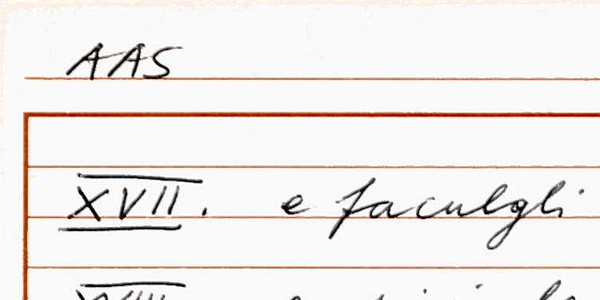 AAS
XVII. e faculgli